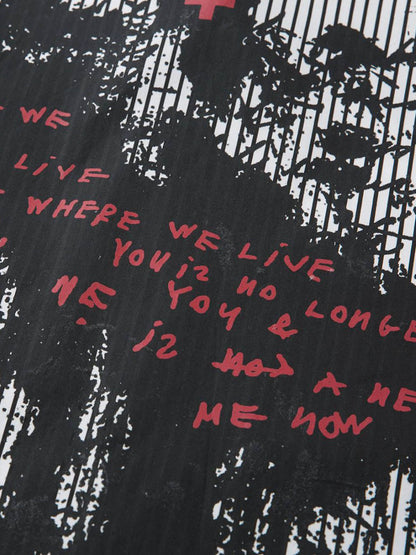 WE
LIVE
WHERE WE LIVE
YOU iz NO LONGE
NE YOU &
iz A NE
ME NOW